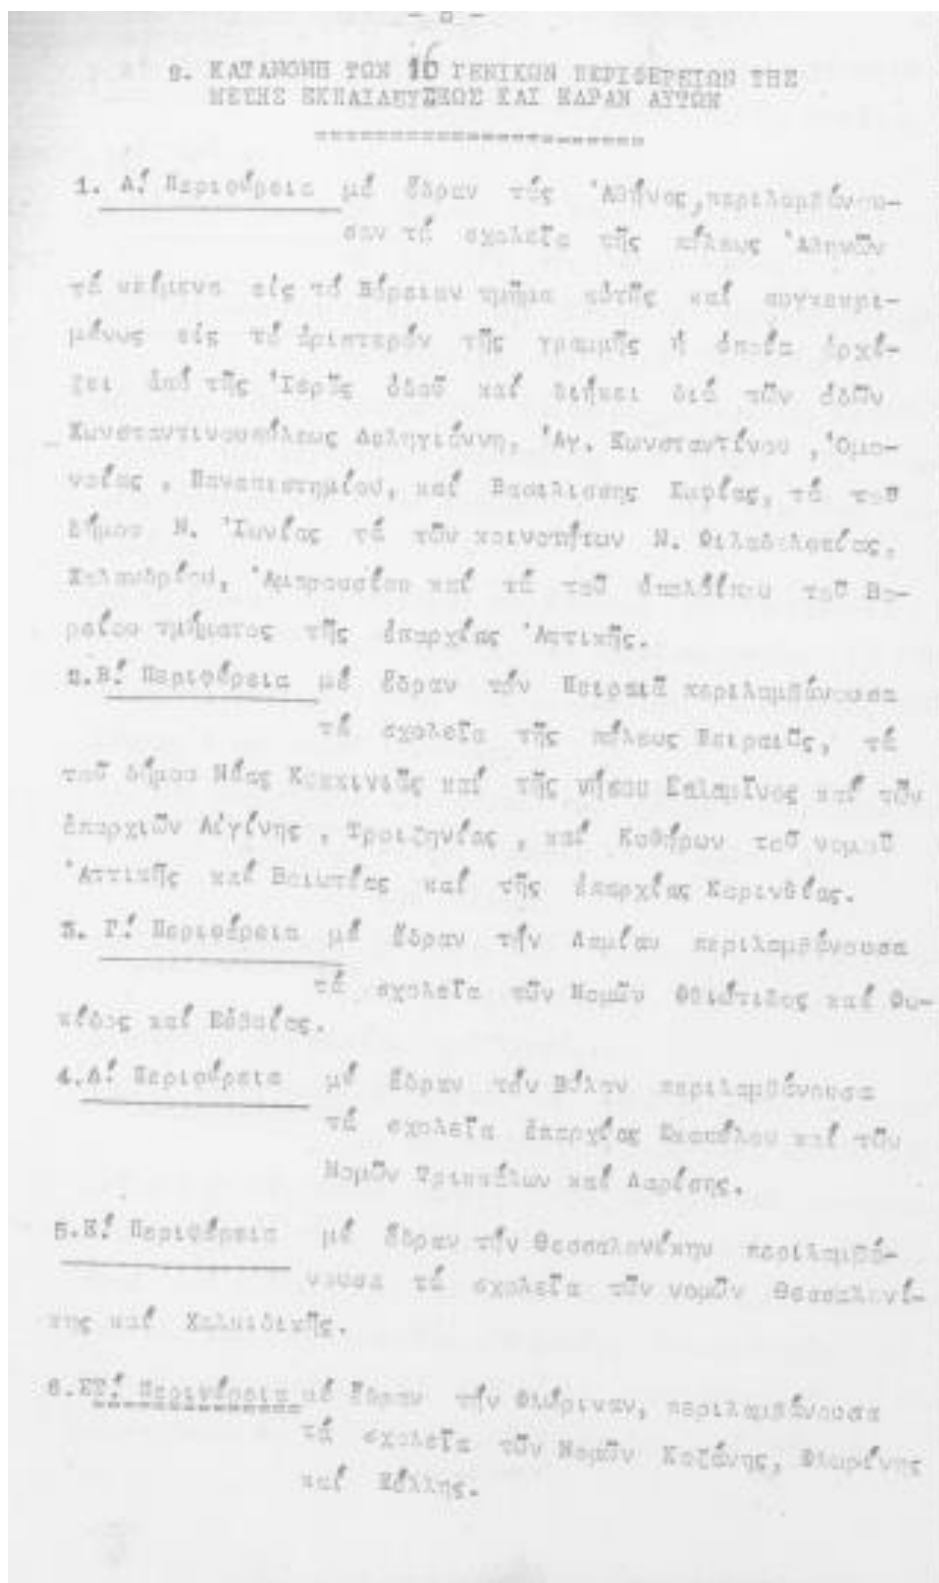 - 8 -
9. ΚΑΤΑΝΟΜΗ ΤΩΝ 16 ΓΕΝΙΚΩΝ ΠΕΡΙΦΕΡΕΙΩΝ ΤΗΣ
ΜΕΣΗΣ ΕΚΠΑΙΔΕΥΣΕΩΣ ΚΑΙ ΕΔΡΑΝ ΑΥΤΩΝ
1. Α! Περιφέρεια μέ ἕδραν τάς Ἀθήνας, περιλαμβάνου-
σαν τά σχολεῖα τῆς πόλεως Ἀθηνῶν
τά κείμενα εἰς τό Βόρειον τμῆμα αὐτῆς καί συγκεκρι-
μένως εἰς τό ἀριστερόν τῆς γραμμῆς ἡ ὁποία ἀρχί-
ζει ἀπό τῆς Ἱερᾶς ὁδοῦ καί διήκει διά τῶν ὁδῶν
Κωνσταντινουπόλεως Δεληγιάννη, Ἁγ. Κωνσταντίνου, Ὁμο-
νοίας, Πανεπιστημίου, καί Βασιλίσσης Σοφίας, τά τοῦ
δήμου Ν. Ἰωνίας τά τῶν κοινοτήτων Ν. Φιλαδελφείας,
Χαλανδρίου, Ἀμαρουσίου καί τά τοῦ ὑπολοίπου τοῦ Βο-
ρείου τμήματος τῆς ἐπαρχίας Ἀττικῆς.
2. Β! Περιφέρεια μέ ἕδραν τόν Πειραιᾶ περιλαμβάνουσα
τά σχολεῖα τῆς πόλεως Πειραιῶς, τά
τοῦ δήμου Νέας Κοκκινιᾶς καί τῆς νήσου Σαλαμῖνος καί τῶν
ἐπαρχιῶν Αἰγίνης, Τροιζηνίας, καί Κυθήρων τοῦ νομοῦ
Ἀττικῆς καί Βοιωτίας καί τῆς ἐπαρχίας Κορινθίας.
3. Γ! Περιφέρεια μέ ἕδραν τήν Λαμίαν περιλαμβάνουσα
τά σχολεῖα τῶν Νομῶν Φθιώτιδος καί Φω-
κίδος καί Εὐβοίας.
4. Δ! Περιφέρεια μέ ἕδραν τόν Βόλον περιλαμβάνουσα
τά σχολεῖα ἐπαρχίας Σκοπέλου καί τῶν
Νομῶν Τρικκάλων καί Λαρίσης.
5. Ε! Περιφέρεια μέ ἕδραν τήν Θεσσαλονίκην περιλαμβά-
νουσα τά σχολεῖα τῶν νομῶν Θεσσαλονί-
κης καί Χαλκιδικῆς.
6. ΣΤ! Περιφέρεια μέ ἕδραν τήν Φλώριναν, περιλαμβάνουσα
τά σχολεῖα τῶν Νομῶν Κοζάνης, Φλωρίνης
καί Πέλλης.